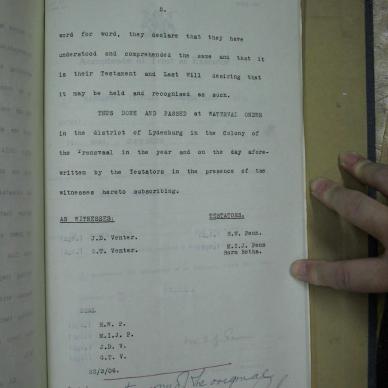 2.
word for word, they declare that they have
understood and comprehended the same and that it
is their Testament and Last Will desiring that
it may be held and recognised as such.
THUS DONE AND PASSED at WATERVAL ONDER
in the district of Lydenburg in the Colony of
the Transvaal in the year and on the day afore-
written by the Testators in the presence of the
witnesses hereto subscribing.
AS WITNESSES: TESTATORS.
J.D. Venter. H.W. Pens.
G.T. Venter. M.I.J. Pens
Born Botha.
H.W. P.
M.I.J. P.
J.D. V.
G.T. V.
22/3/04.
the original